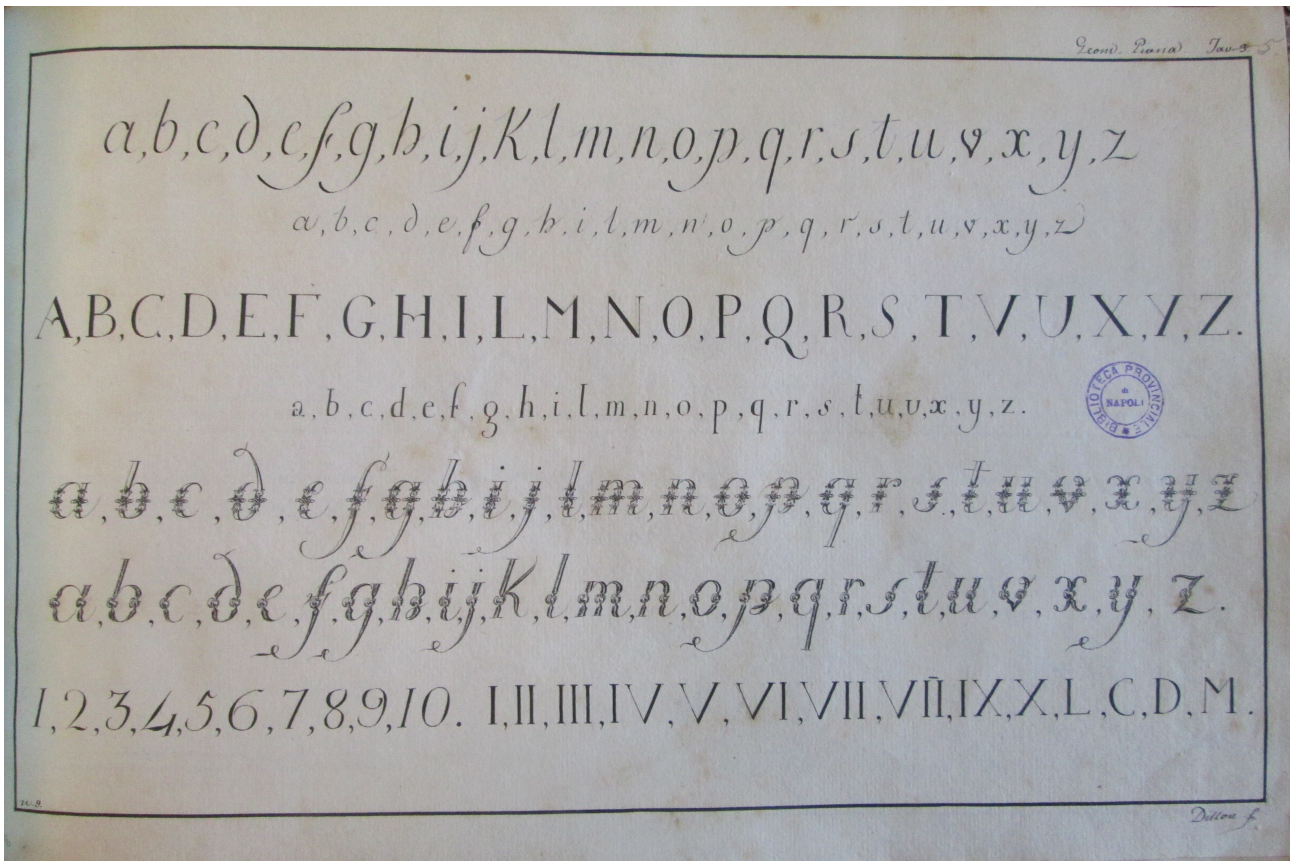 Geom. Piana Tav. 5
a,b,c,d,e,f,g,h,i,j,K,l,m,n,o,p,q,r,s,t,u,v,x,y,z
a,b,c,d,e,f,g,h,i,l,m,n,o,p,q,r,s,t,u,v,x,y,z
A,B,C,D,E,F,G,H,I,L,M,N,O,P,Q,R,S,T,V,U,X,Y,Z.
a,b,c,d,e,f,g,h,i,l,m,n,o,p,q,r,s,t,u,v,x,y,z.
BIBLIOTECA PROVINCIALE
di
NAPOLI
a,b,c,d,e,f,g,h,i,j,l,m,n,o,p,q,r,s,t,u,v,x,y,z
a,b,c,d,e,f,g,h,i,j,K,l,m,n,o,p,q,r,s,t,u,v,x,y,z.
1,2,3,4,5,6,7,8,9,10. I,II,III,IV,V,VI,VII,VIII,IX,X,L,C,D,M.